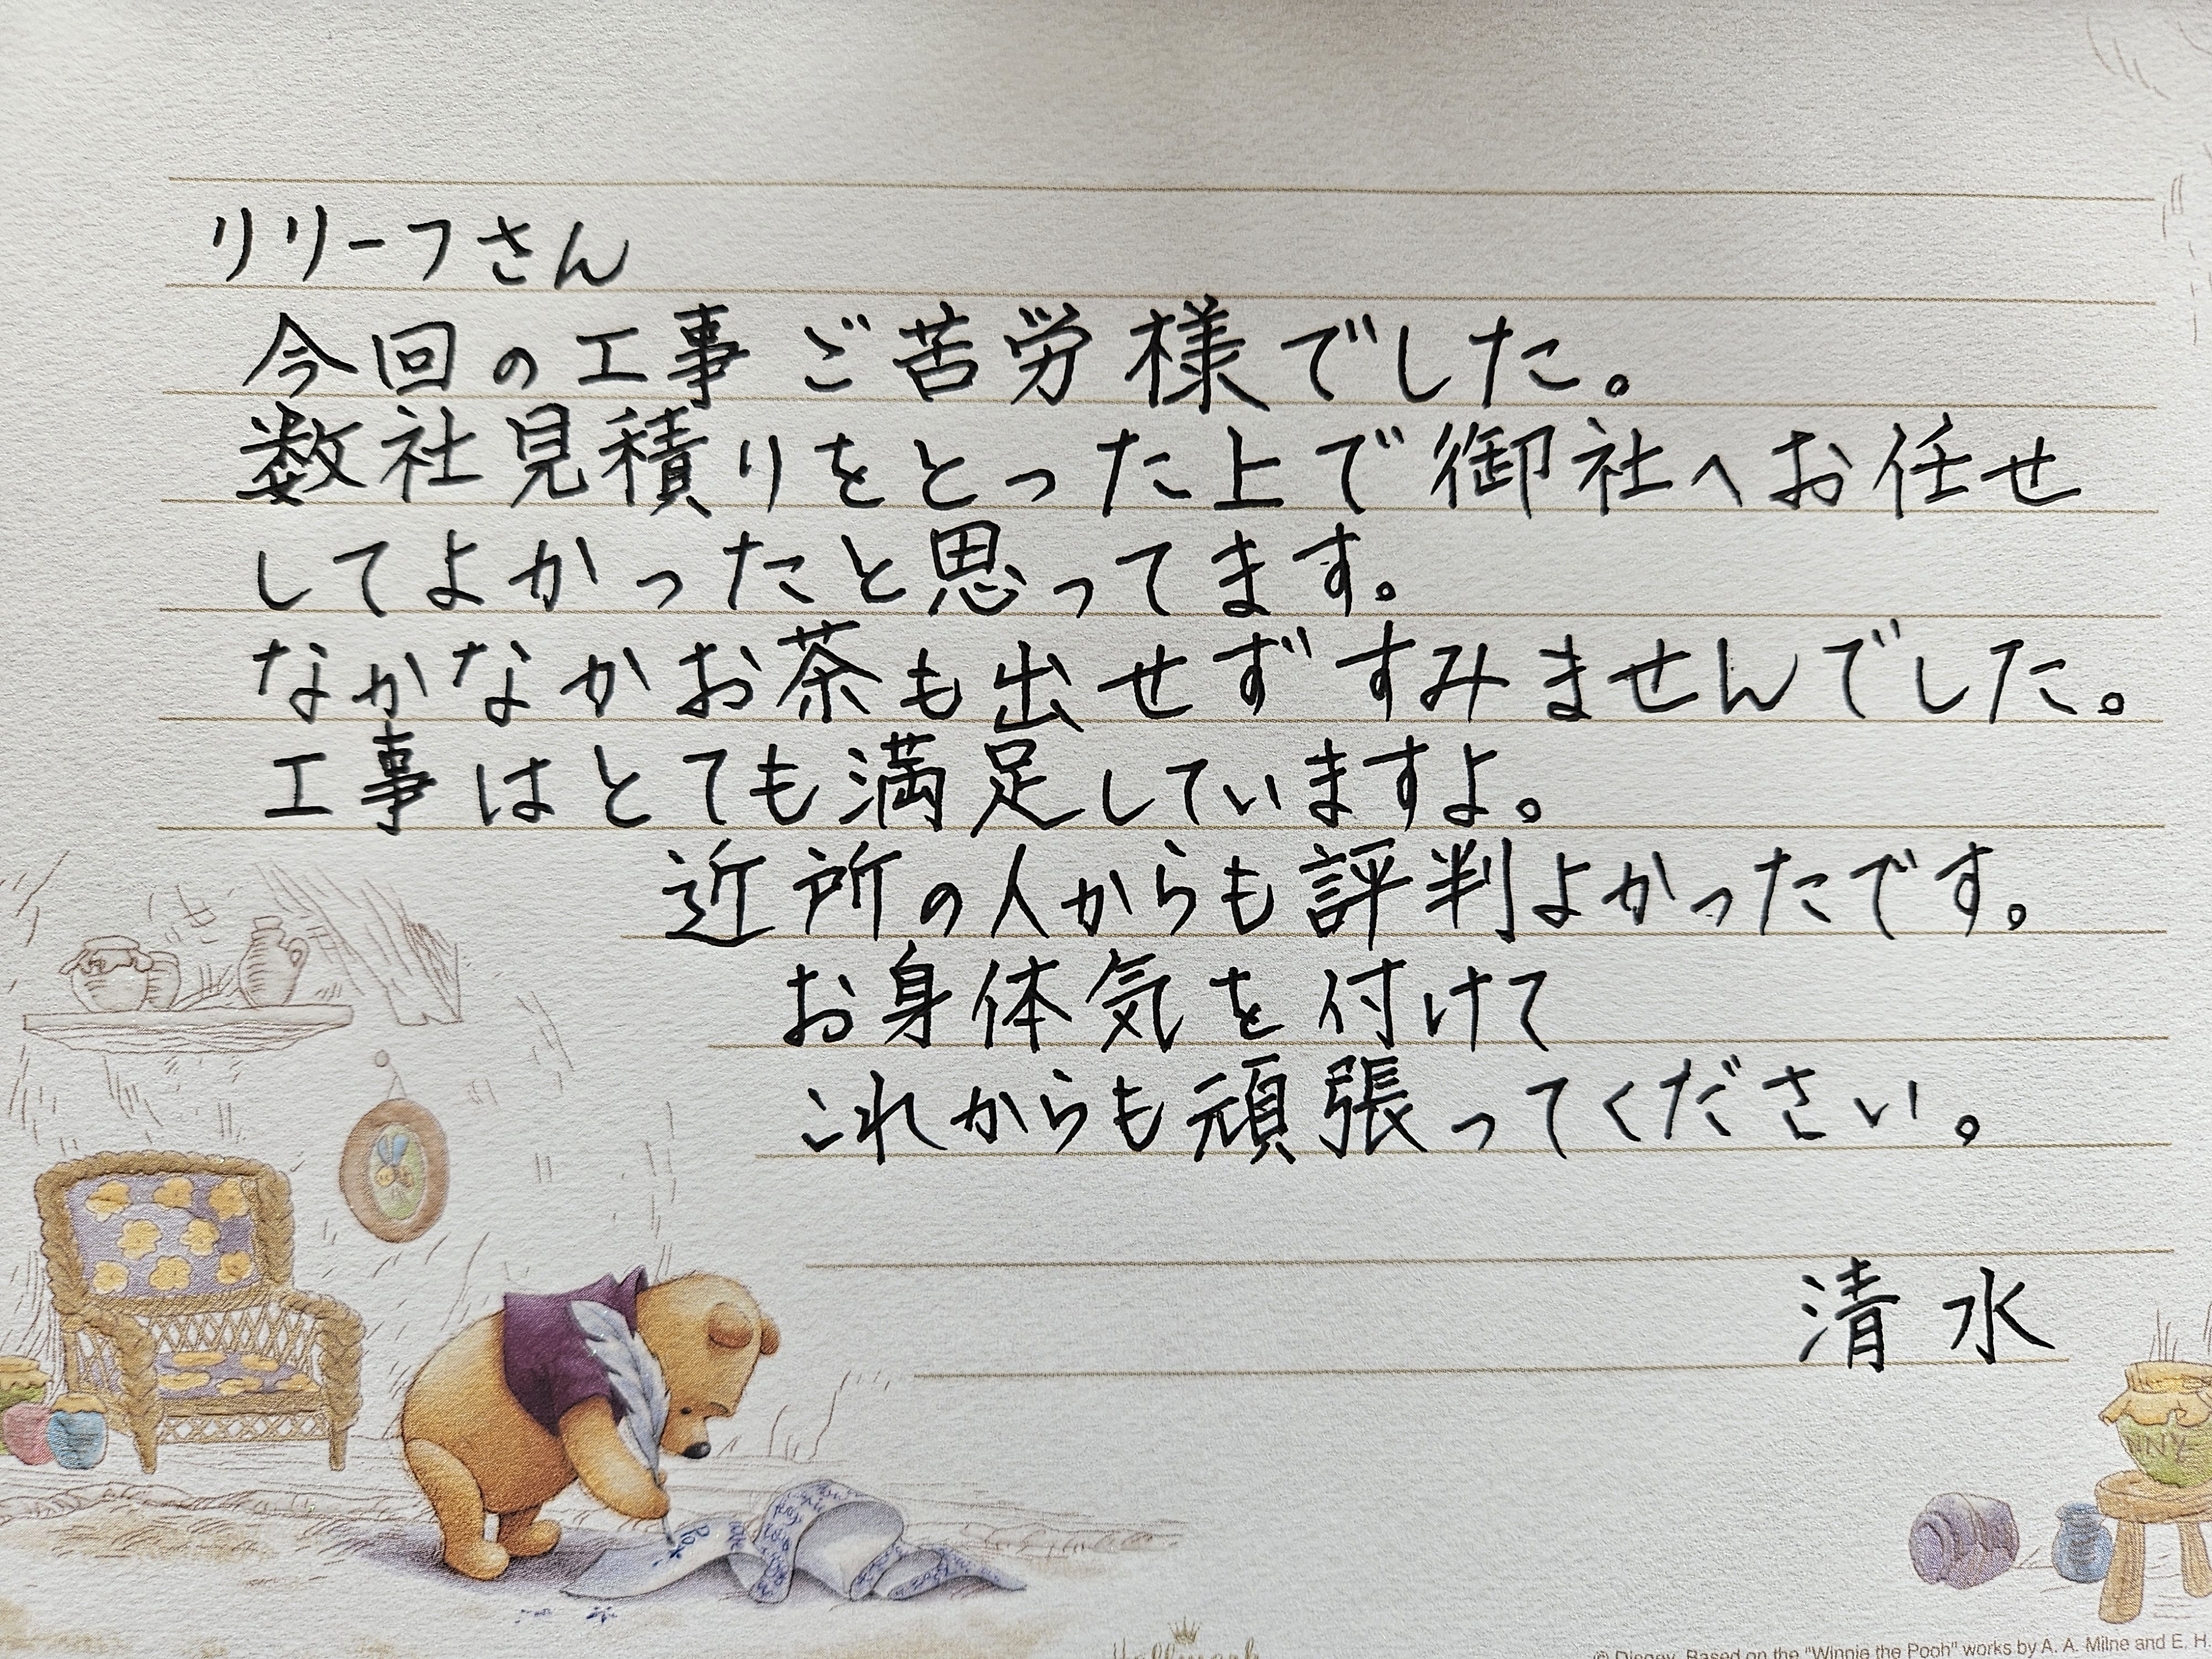 リリーフさん
今回の工事 ご苦労様でした。
数社見積りをとった上で御社へお任せ
してよかったと思ってます。
なかなかお茶も出せず すみませんでした。
工事はとても満足していますよ。
近所の人からも評判よかったです。
お身体気を付けて
これからも頑張ってください。
清水
NNY
Hallmark
© Disney. Based on the "Winnie the Pooh" works by A. A. Milne and E. H.